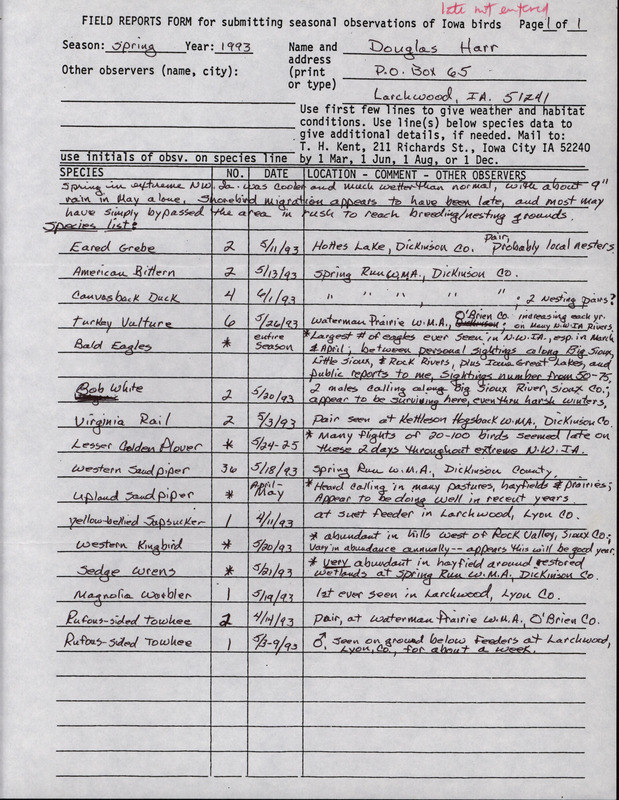 late not entered
FIELD REPORTS FORM for submitting seasonal observations of Iowa birds Page 1 of 1
Season: Spring Year: 1993 Name and Douglas Harr
address
Other observers (name, city): (print P.O. Box 65
or type)
Larchwood, IA. 51241
Use first few lines to give weather and habitat
conditions. Use line(s) below species data to
give additional details, if needed. Mail to:
T. H. Kent, 211 Richards St., Iowa City IA 52240
use initials of obsv. on species line by 1 Mar, 1 Jun, 1 Aug, or 1 Dec.
SPECIES NO. DATE LOCATION - COMMENT - OTHER OBSERVERS
Spring in extreme N.W. Ia. was cooler and much wetter than normal, with about 9"
rain in May alone. Shorebird migration appears to have been late, and most may
have simply bypassed the area in rush to reach breeding/nesting grounds.
Species list:
Eared Grebe 2 5/11/93 Hottes Lake, Dickinson Co. Pair, Probably local nesters
American Bittern 2 5/13/93 Spring Run W.M.A., Dickinson Co.
Canvasback Duck 4 6/1/93 " " " , " " ; 2 nesting pairs?
Turkey Vulture 6 5/26/93 Waterman Prairie W.M.A., O'Brien Co. Dickinson; increasing each yr. on many N.W. IA Rivers
Bald Eagles * entire season * Largest # of eagles ever seen in N.W. IA., esp. in March
& April; between personal sightings along Big Sioux,
Little Sioux, & Rock Rivers, plus Iowa Great Lakes, and
public reports to me, sightings number from 50-75.
Bob White 2 5/20/93 2 males calling along Big Sioux River, Sioux Co.;
appear to be surviving here, even thru harsh winters.
Virginia Rail 2 5/3/93 Pair seen at Kettleson Hogsback W.M.A., Dickinson Co.
Lesser Golden Plover * 5/24-25 * Many flights of 20-100 birds seemed late on
these 2 days throughout extreme N.W. IA.
Western Sandpiper 36 5/18/93 Spring Run W.M.A., Dickinson County
Upland Sandpiper * April-May * Heard calling in many pastures, hayfields & prairies;
Appear to be doing well in recent years
Yellow-bellied Sapsucker 1 4/11/93 at suet feeder in Larchwood, Lyon Co.
Western Kingbird * 5/20/93 * abundant in hills west of Rock Valley, Sioux Co.;
Vary in abundance annually -- appears this will be good year.
Sedge Wrens * 5/21/93 * very abundant in hayfield around restored
wetlands at Spring Run W.M.A., Dickinson Co.
Magnolia Warbler 1 5/19/93 1st ever seen in Larchwood, Lyon Co.
Rufous-sided Towhee 2 4/14/93 pair, at Waterman Prairie W.M.A., O'Brien Co.
Rufous-sided Towhee 1 5/3-9/93 ♂, seen on ground below feeders at Larchwood,
Lyon Co., for about a week.